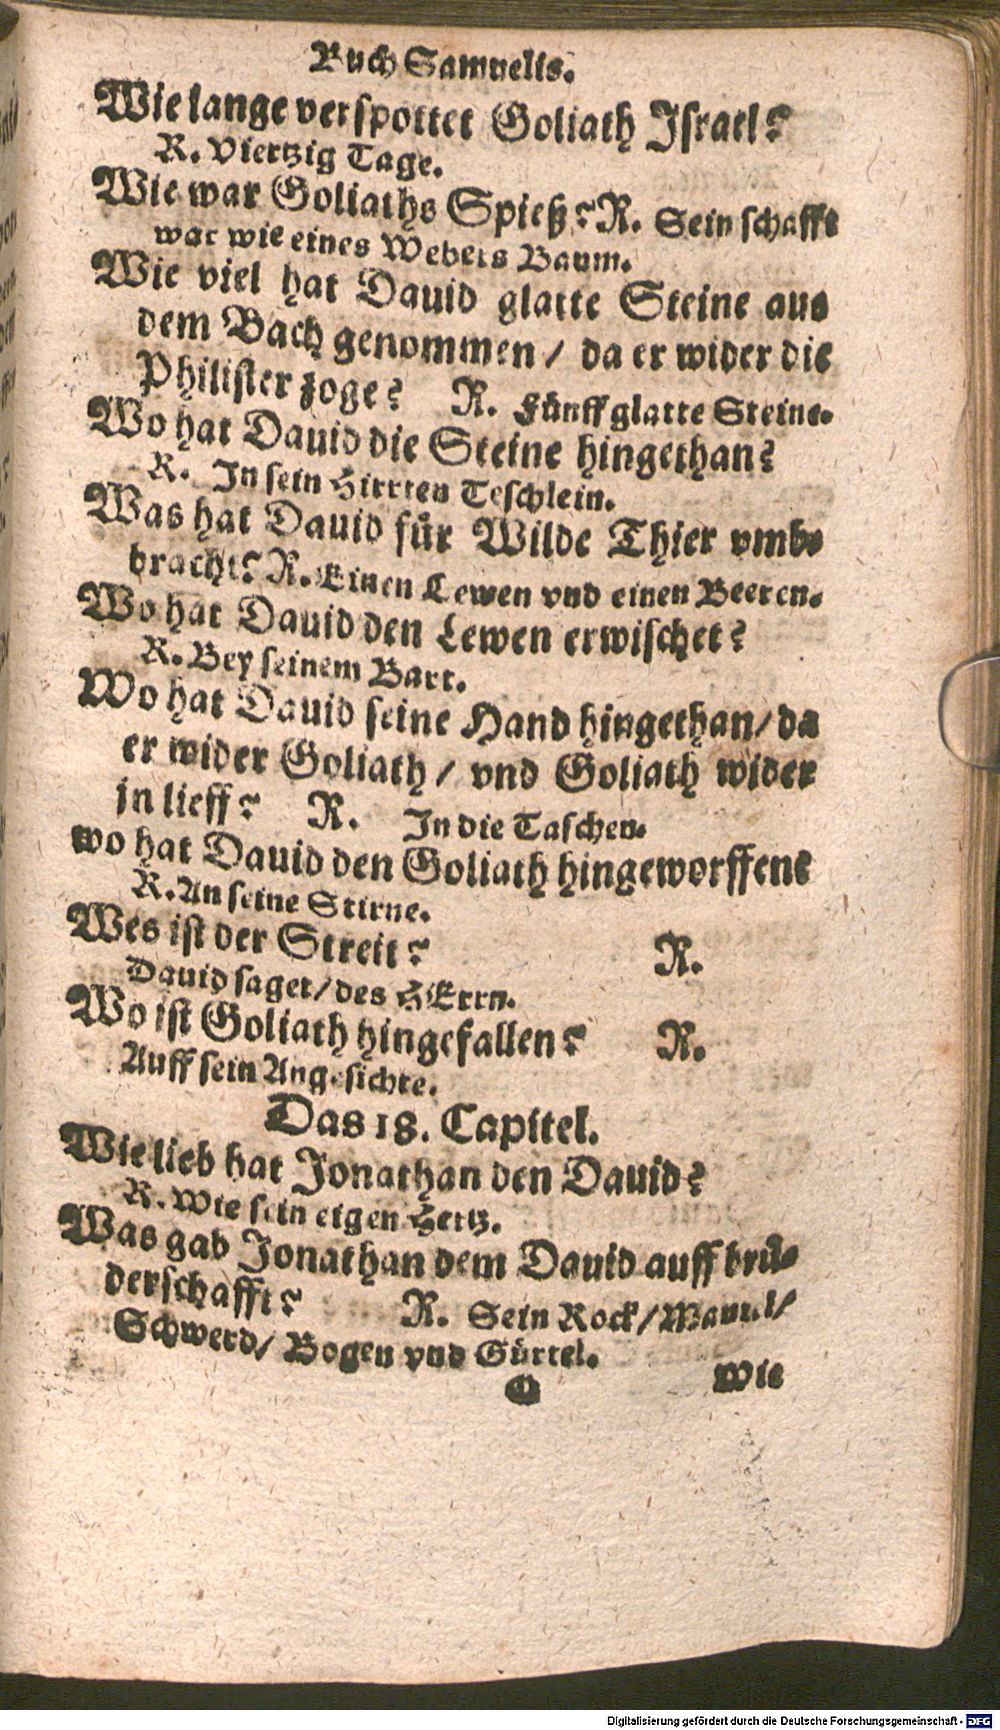 Buch Samuelis.
Wie lange verspottet Goliath Israel?
R. Viertzig Tage.
Wie war Goliaths Spieß? R. Sein schafft
war wie eines Webers Baum.
Wie viel hat Dauid glatte Steine aus
dem Bach genommen / da er wider die
Philister zoge? R. Fünff glatte Steine.
Wo hat Dauid die Steine hingethan?
R. In sein Hirrten Teschlein.
Was hat Dauid für Wilde Thier vmb-
bracht? R. Einen Lewen vnd einen Beeren.
Wo hat Dauid den Lewen erwischet?
R. Bey seinem Bart.
Wo hat Dauid seine Hand hingethan / da
er wider Goliath / vnd Goliath wider
jn lieff? R. In die Taschen.
wo hat Dauid den Goliath hingeworffen?
R. An seine Stirne.
Wes ist der Streit? R.
Dauid saget / des HErrn.
Wo ist Goliath hingefallen? R.
Auff sein Angesichte.
Das 18. Capitel.
Wie lieb hat Jonathan den Dauid?
R. Wie sein eigen Hertz.
Was gab Jonathan dem Dauid auff brü-
derschafft? R. Sein Rock / Mantel /
Schwerd / Bogen vnd Gürtel.
Q wie
Digitalisierung gefördert durch die Deutsche Forschungsgemeinschaft - DFG